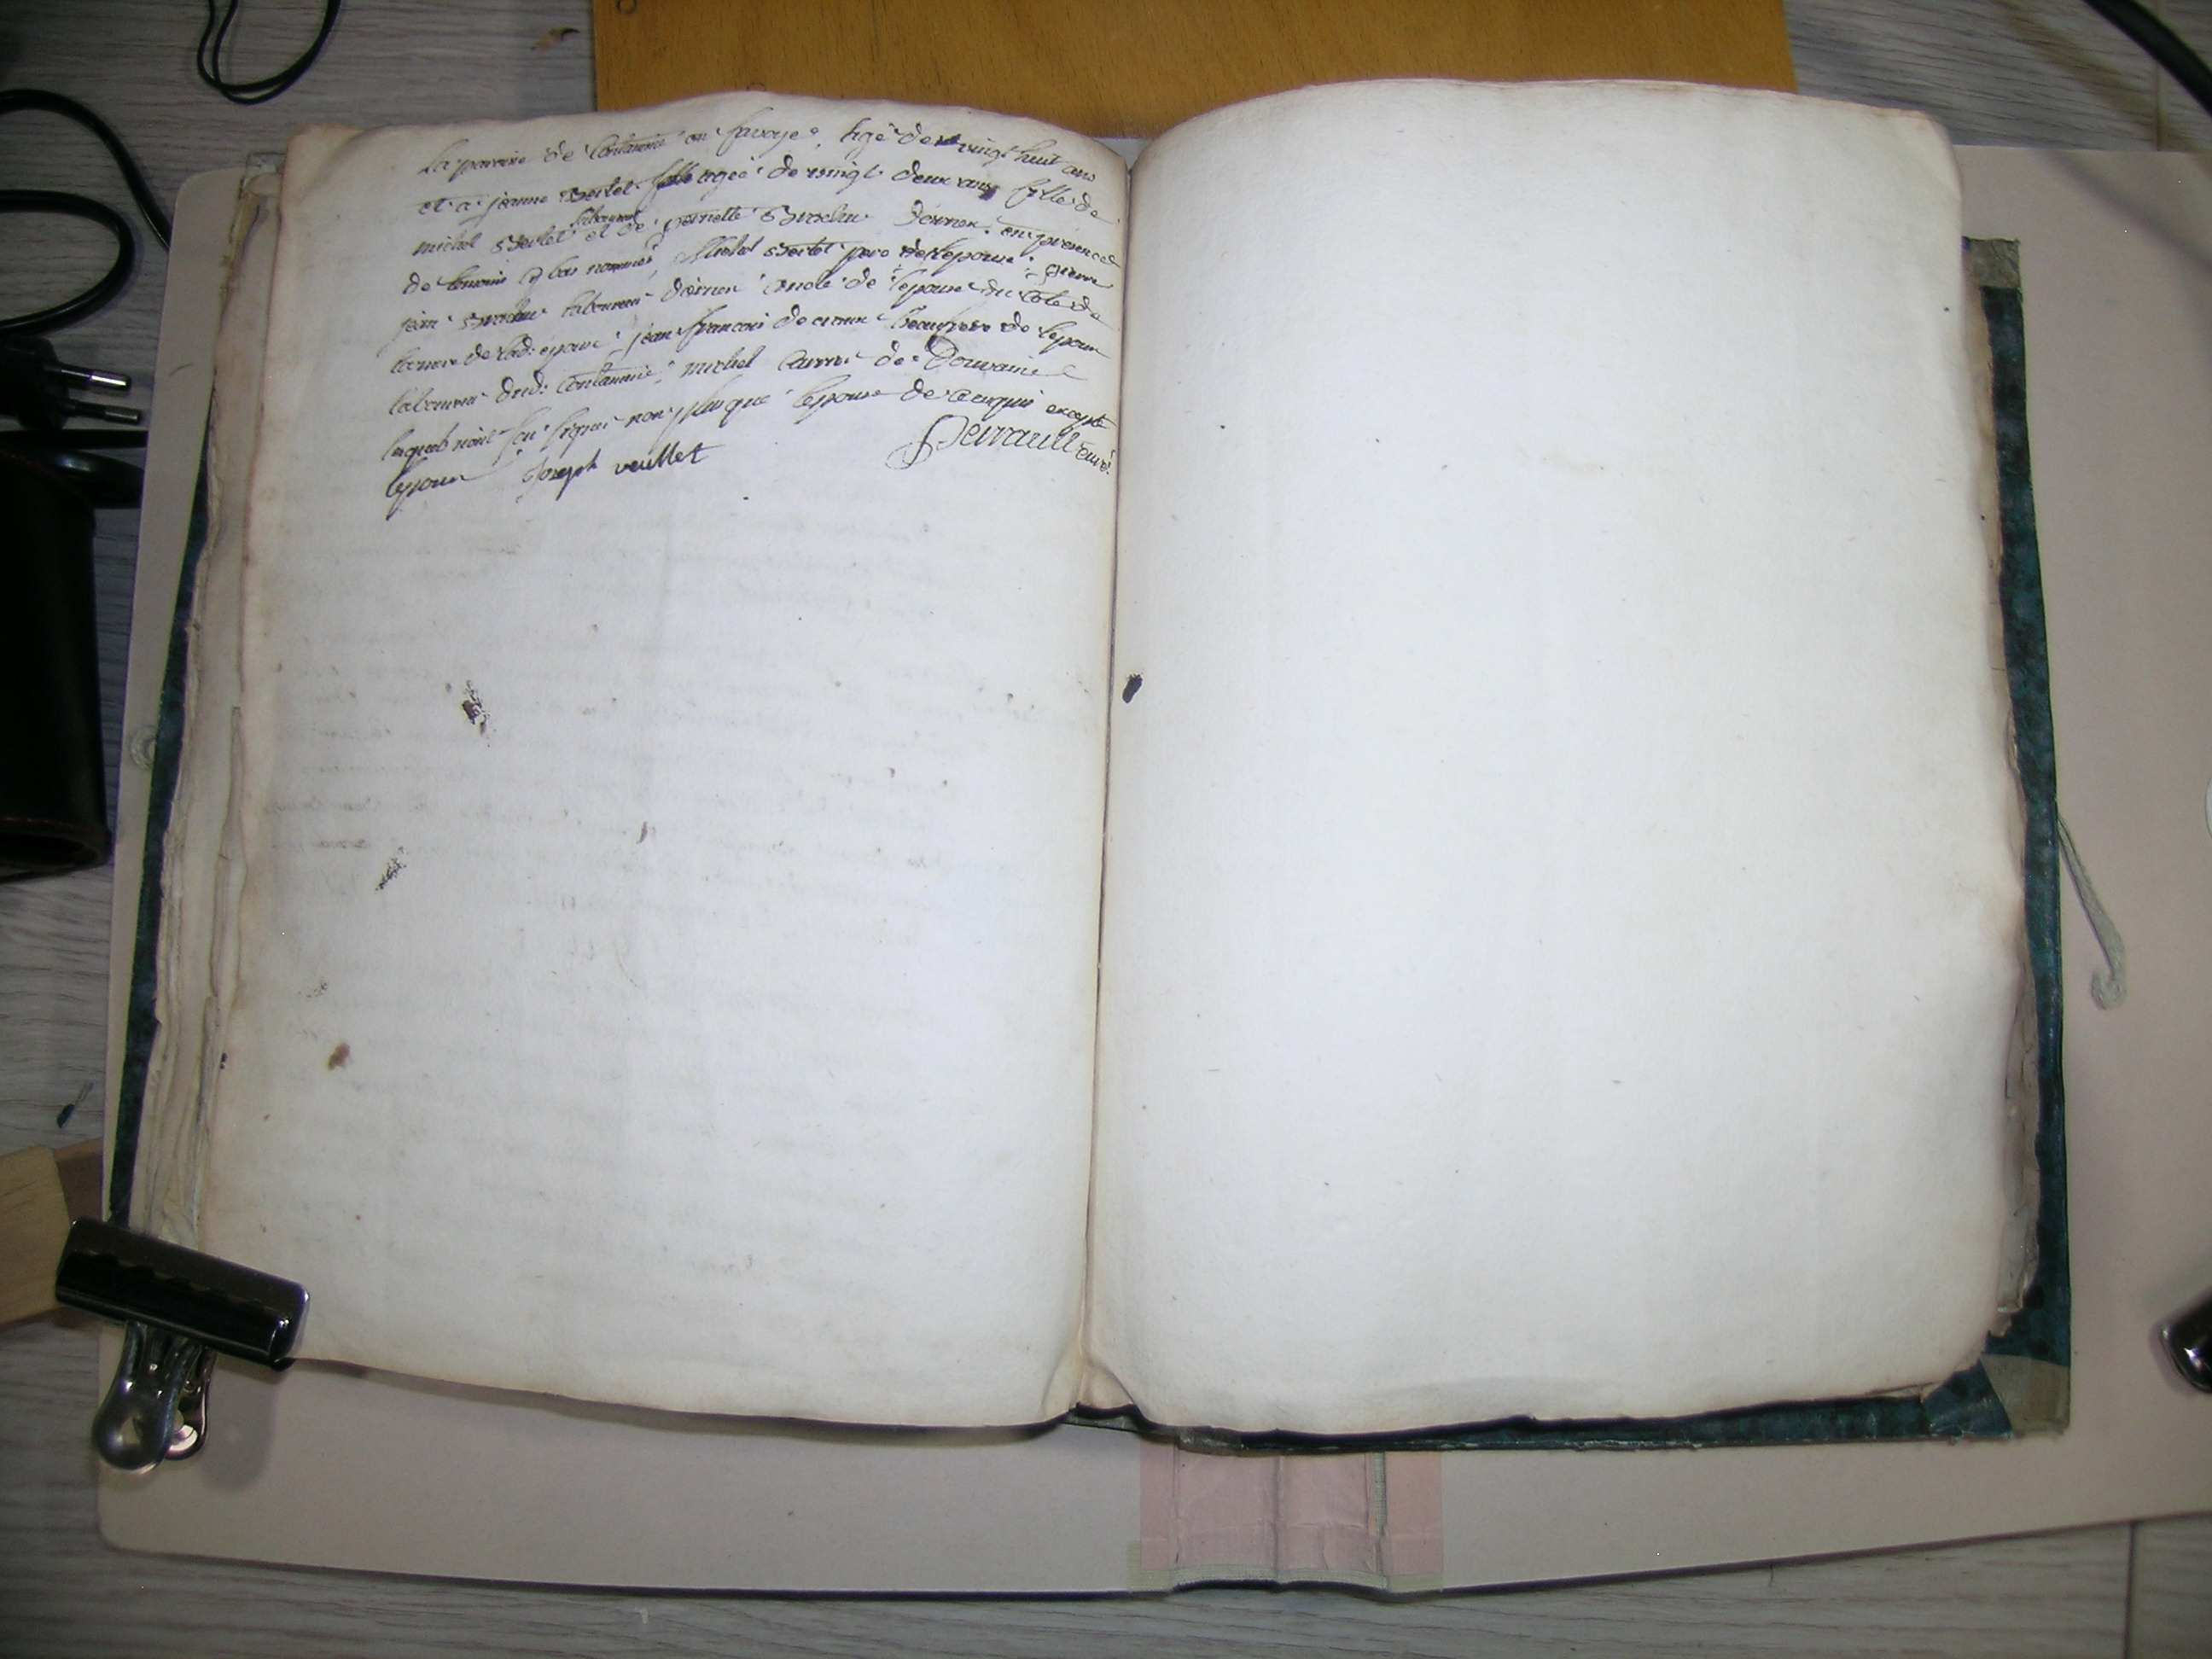 La paroisse de Contamine en Savoye, agé de vingt huit ans
et a jeanne Bertet agée de vingt deux ans fille de
michel Bertet laboureur et de pernette Brochu Dornex en presence
de temoins cy bas nommes, Michel Bertet pere de l'epouse, pierre
jean Brochu laboureur Dornex oncle de l'epouse du coté de
la mere de lad. epouse, jean francois de beaufrere de l'epoux
laboureur dud. Contamine, michel de Douvaine
lesquels n'ont sçu signer non plus que l'epouse de ce enquis excepté
lepoux Joseph veullet Perrault curé